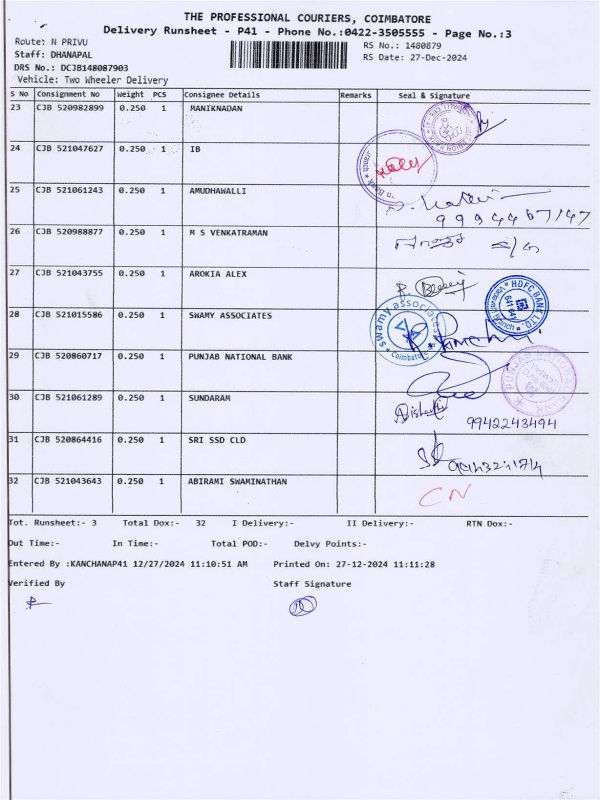 THE PROFESSIONAL COURIERS, COIMBATORE
Delivery Runsheet - P41 - Phone No.:0422-3505555 - Page No.:3
Route: N PRIVU
RS No.: 1480879
Staff: DHANAPAL
RS Date: 27-Dec-2024
DRS No.: DCJB148087903
Vehicle: Two Wheeler Delivery
S No Consignment No Weight PCS Consignee Details Remarks Seal & Signature
23 CJB 520982899 0.250 1 MANIKNADAN
24 CJB 521047627 0.250 1 IB
25 CJB 521061243 0.250 1 AMUDHAWALLI
9994467147
26 CJB 520988877 0.250 1 M S VENKATRAMAN
27 CJB 521043755 0.250 1 AROKIA ALEX
HDFC BANK LTD.
28 CJB 521015586 0.250 1 SWAMY ASSOCIATES
swamy associates
Coimbatore
29 CJB 520860717 0.250 1 PUNJAB NATIONAL BANK
PUNJAB NATIONAL BANK
30 CJB 521061289 0.250 1 SUNDARAM
9942243494
31 CJB 520864416 0.250 1 SRI SSD CLD
32 CJB 521043643 0.250 1 ABIRAMI SWAMINATHAN
CN
Tot. Runsheet:- 3 Total Dox:- 32 I Delivery:- II Delivery:- RTN Dox:-
Out Time:- In Time:- Total POD:- Delvy Points:-
Entered By :KANCHANAP41 12/27/2024 11:10:51 AM Printed On: 27-12-2024 11:11:28
Verified By Staff Signature